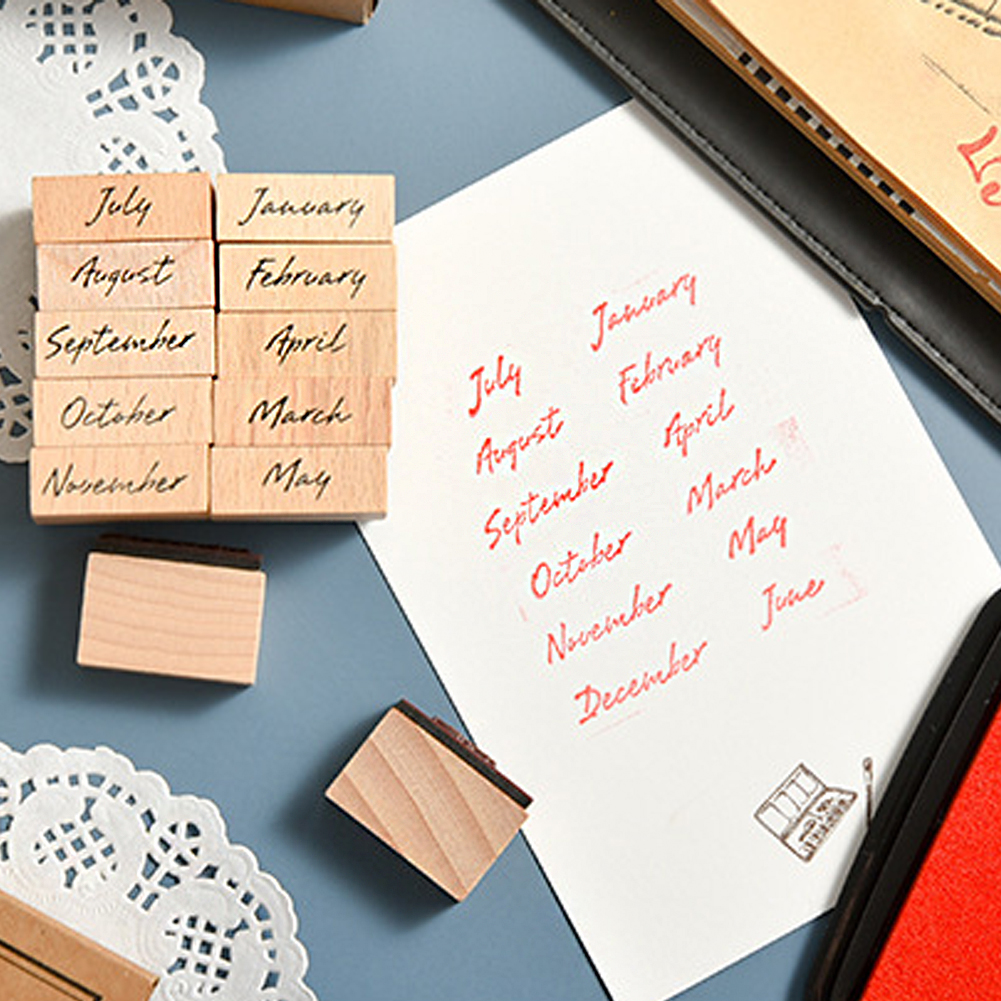 July January
August February
September April
October March
November May
January
July
February
August
April
September
March
October
May
November
June
December